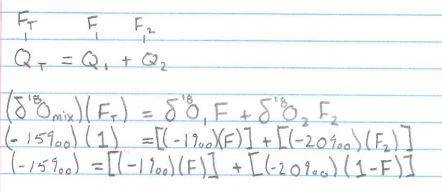 F_T F F_2
Q_T = Q_1 + Q_2
(δ¹⁸O_mix)(F_T) = δ¹⁸O_1 F + δ¹⁸O_2 F_2
(-15‰)(1) = [(-1‰)(F)] + [(-20‰)(F_2)]
(-15‰) = [(-1‰)(F)] + [(-20‰)(1-F)]